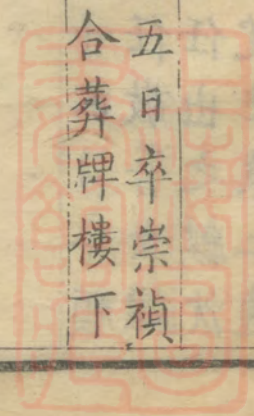 五日卒崇禎
合葬牌樓下